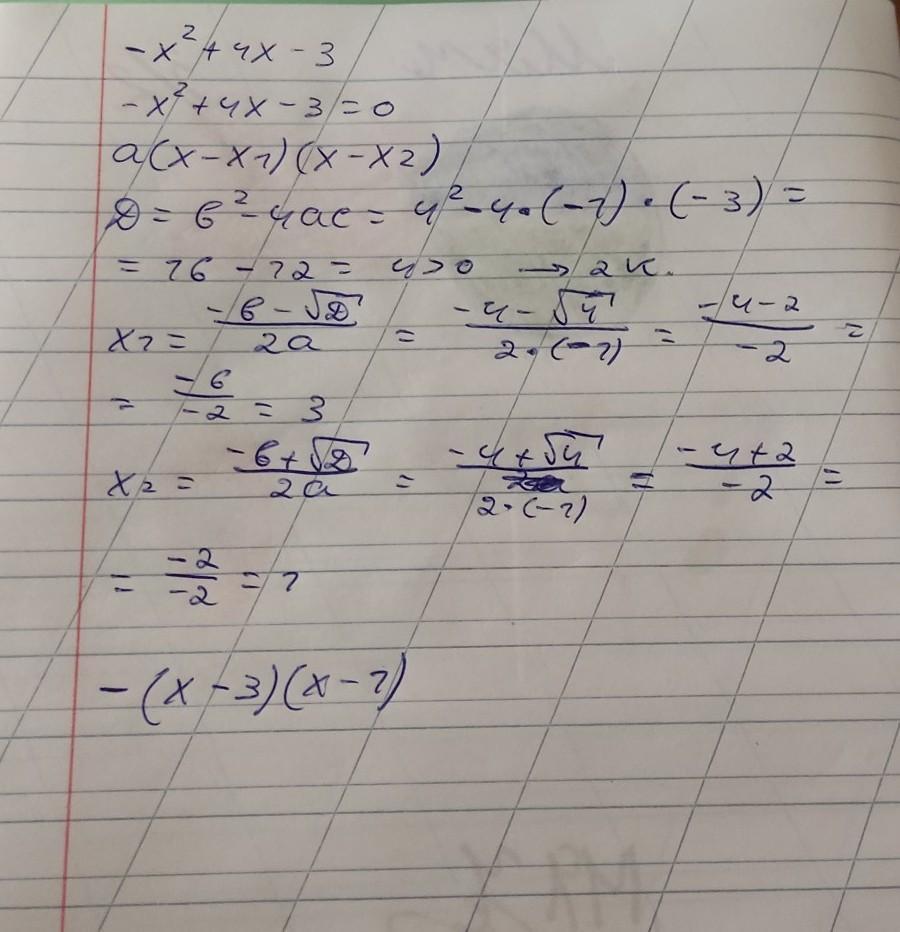 -x² + 4x - 3
-x² + 4x - 3 = 0
a(x - x1)(x - x2)
D = b² - 4ac = 4² - 4·(-1)·(-3) =
= 16 - 12 = 4 > 0 → 2 к.
x1 = (-b - √D)/(2a) = (-4 - √4)/(2·(-1)) = (-4 - 2)/(-2) =
= (-6)/(-2) = 3
x2 = (-b + √D)/(2a) = (-4 + √4)/(2·(-1)) = (-4 + 2)/(-2) =
= (-2)/(-2) = 1
-(x - 3)(x - 1)